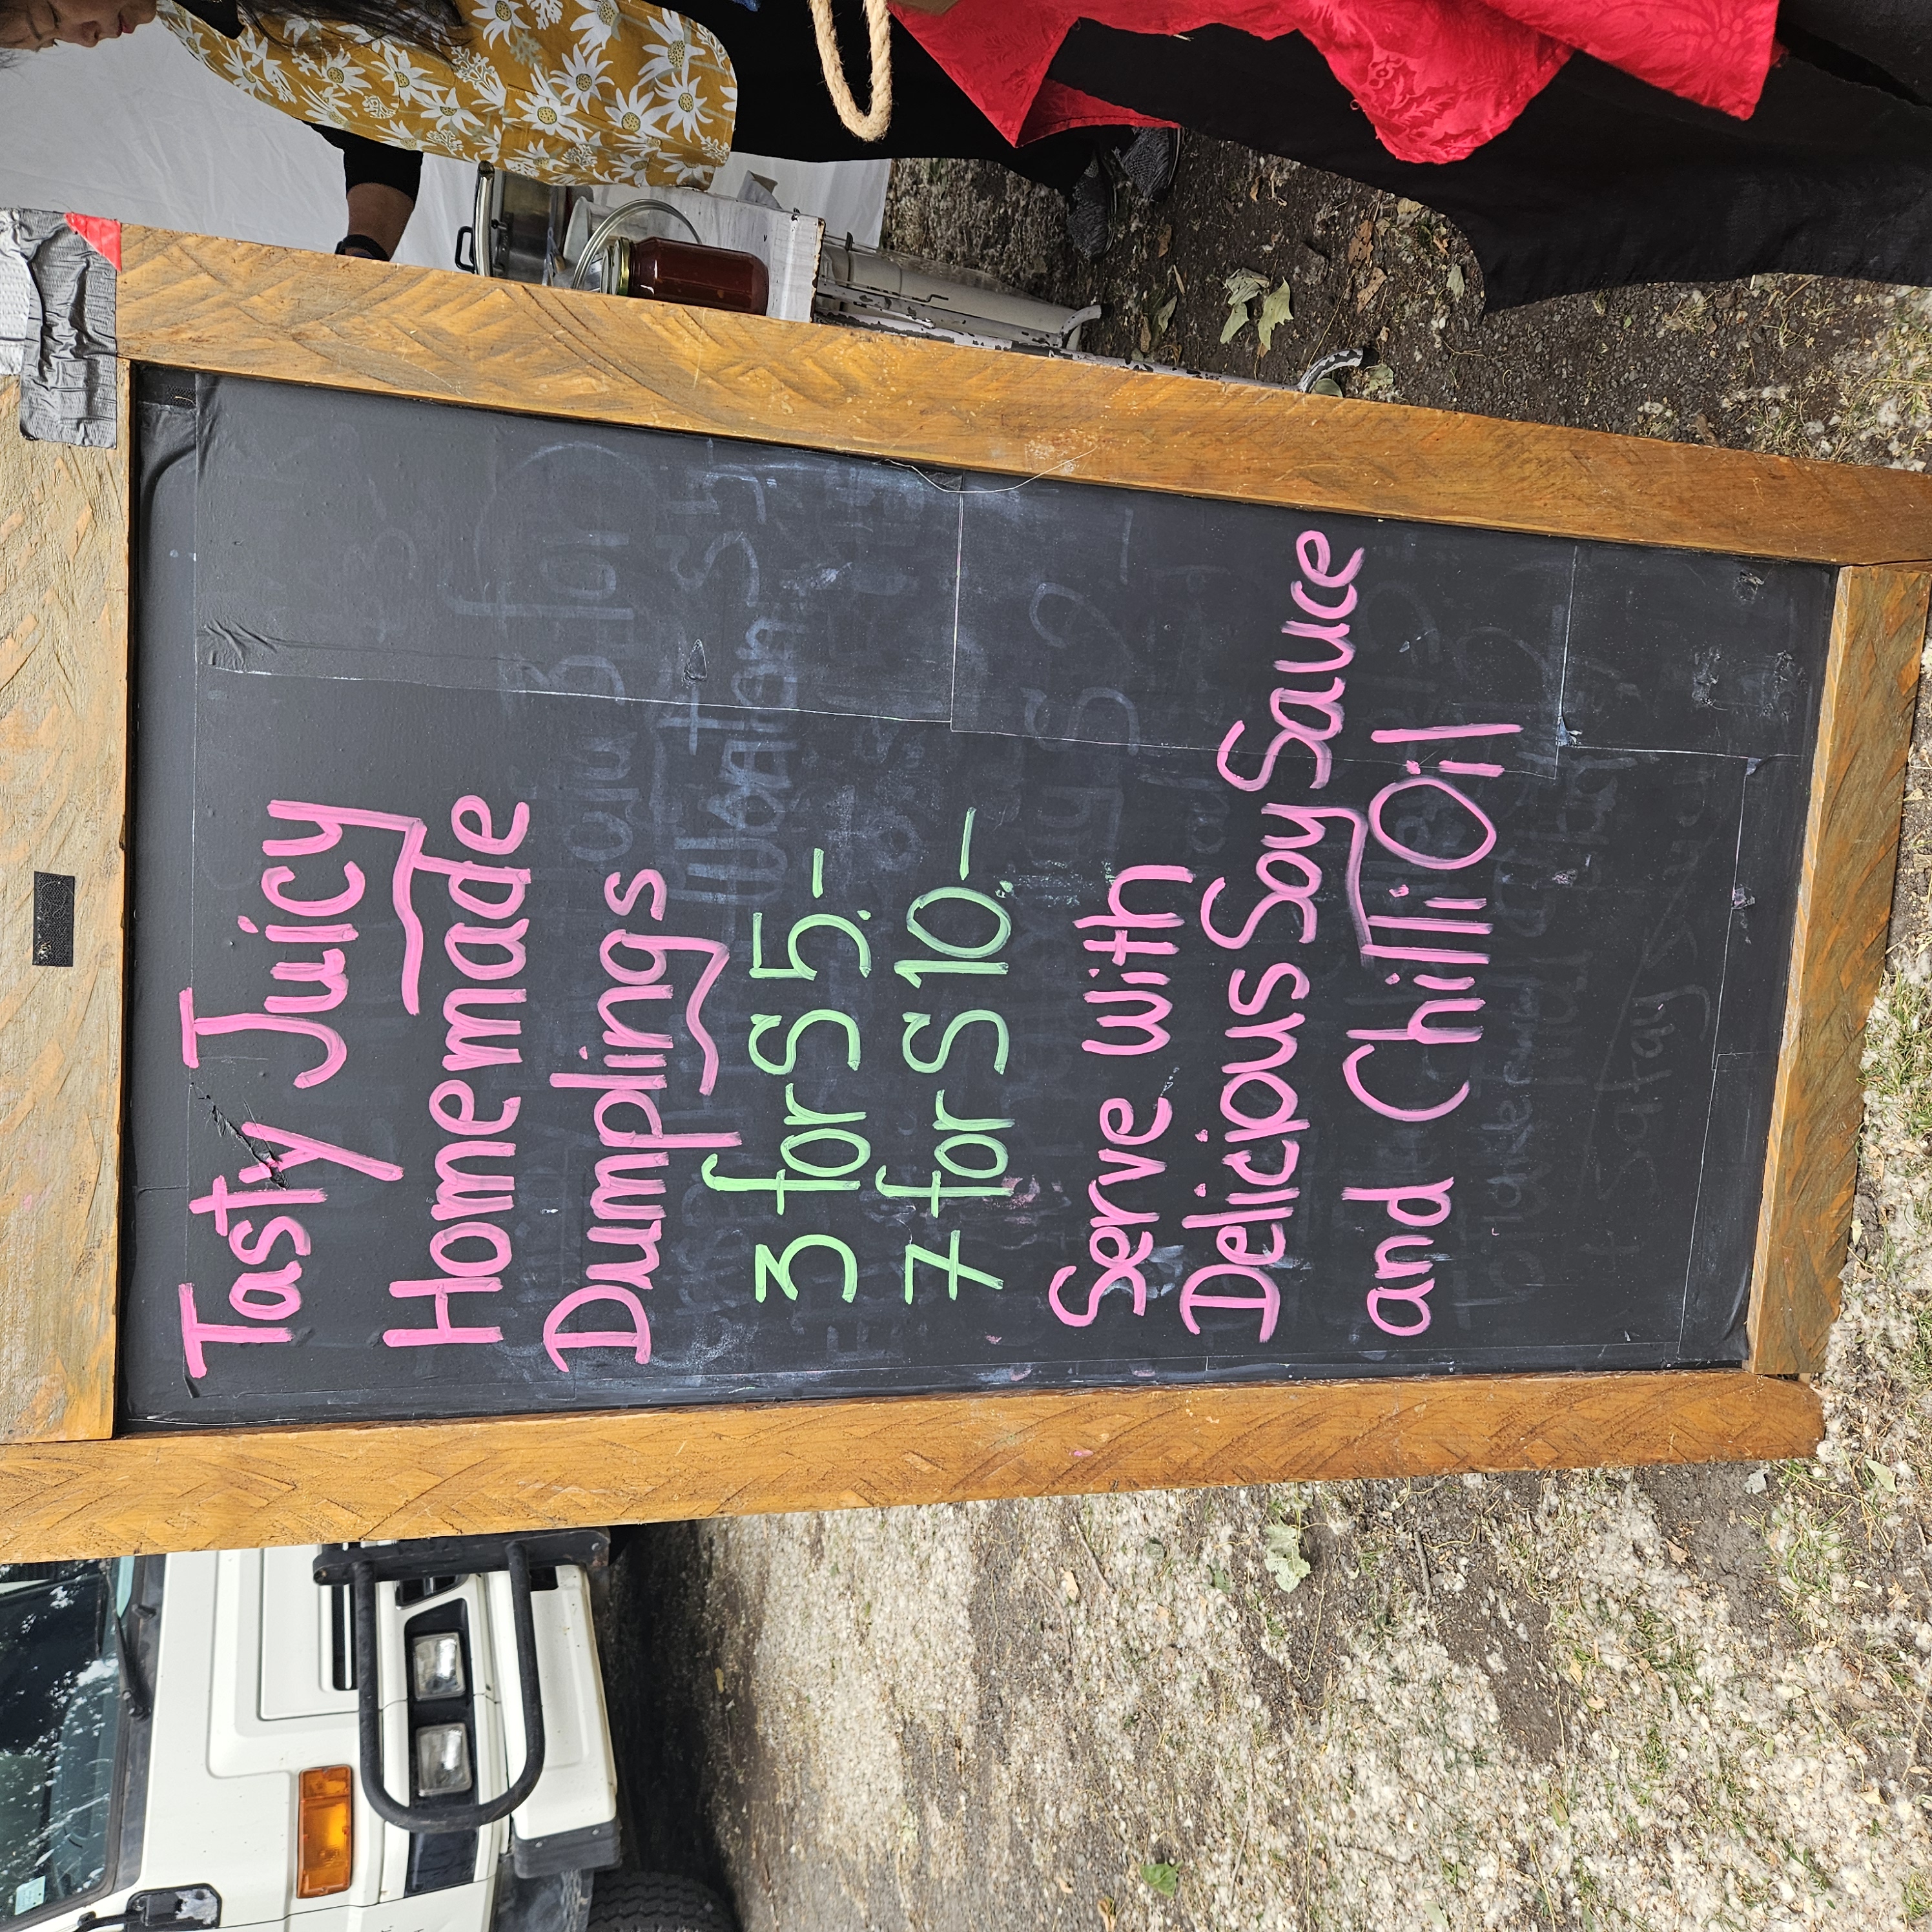 Tasty Juicy
Homemade
Dumplings
3 for $5.-
7 for $10.-
Serve with
Delicious Soy Sauce
and Chilli Oil